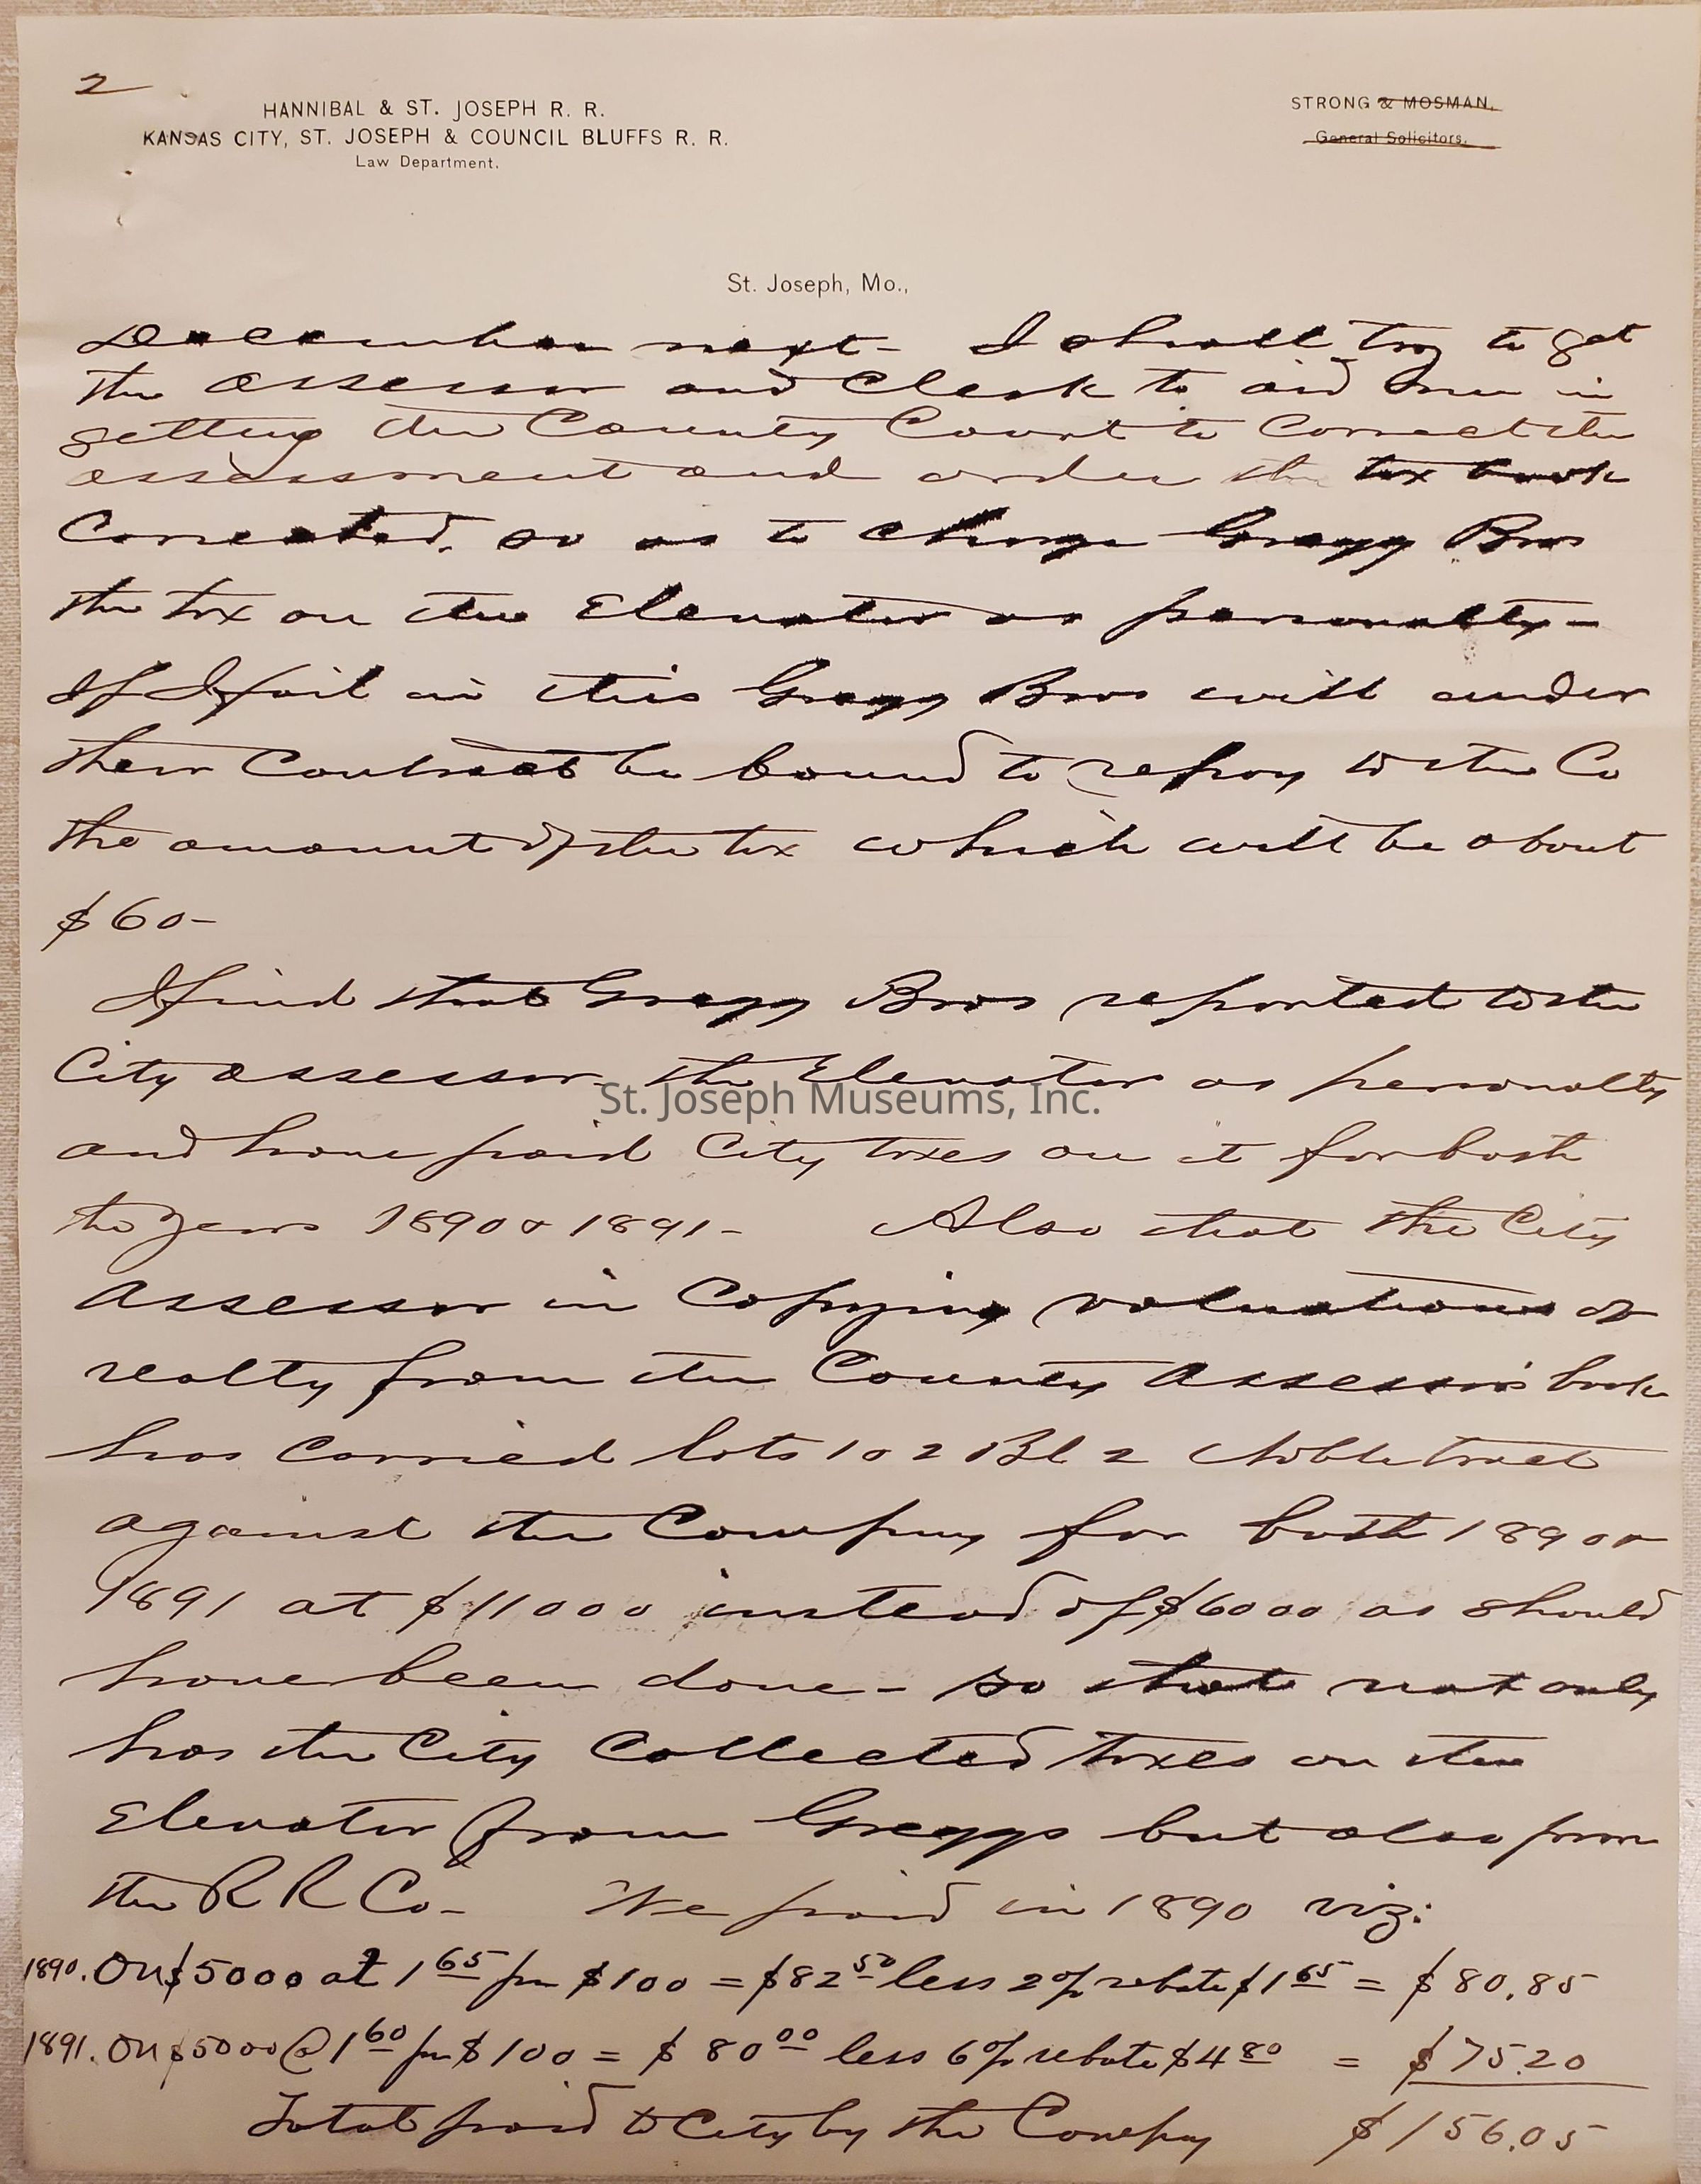 2
HANNIBAL & ST. JOSEPH R. R.
KANSAS CITY, ST. JOSEPH & COUNCIL BLUFFS R. R.
Law Department.
STRONG & MOSMAN,
General Solicitors.
St. Joseph, Mo.,
December next - I shall try to get
the assessor and Clerk to aid me in
getting the County Court to Correct the
assessment and order the tax book
Corrected, so as to charge Gregg Bros
the tax on the Elevator as personalty -
If I fail in this Gregg Bros will under
their Contract be bound to repay to the Co
the amount of the tax which will be about
$60-
I find that Gregg Bros reported to the
City assessor the Elevator as personalty
and have paid City taxes on it for both
the years 1890 & 1891 - Also that the City
Assessor in Copying valuations of
realty from the County Assessor's book
has Carried lots 1 & 2 Bl 2 Noble tract
against the Company for both 1890 &
1891 at $11000 instead of $6000 as should
have been done - so that not only
has the City Collected taxes on the
Elevator from Greggs but also from
the R R Co - We paid in 1890 viz:
1890. On $5000 at 1 65 per $100 = $82 50 less 2% rebate $1 65 = $80.85
1891. On $5000 @ 1 60 per $100 = $80 00 less 6% rebate $4 80 = $75.20
Total paid to City by the Company $156.05
St. Joseph Museums, Inc.